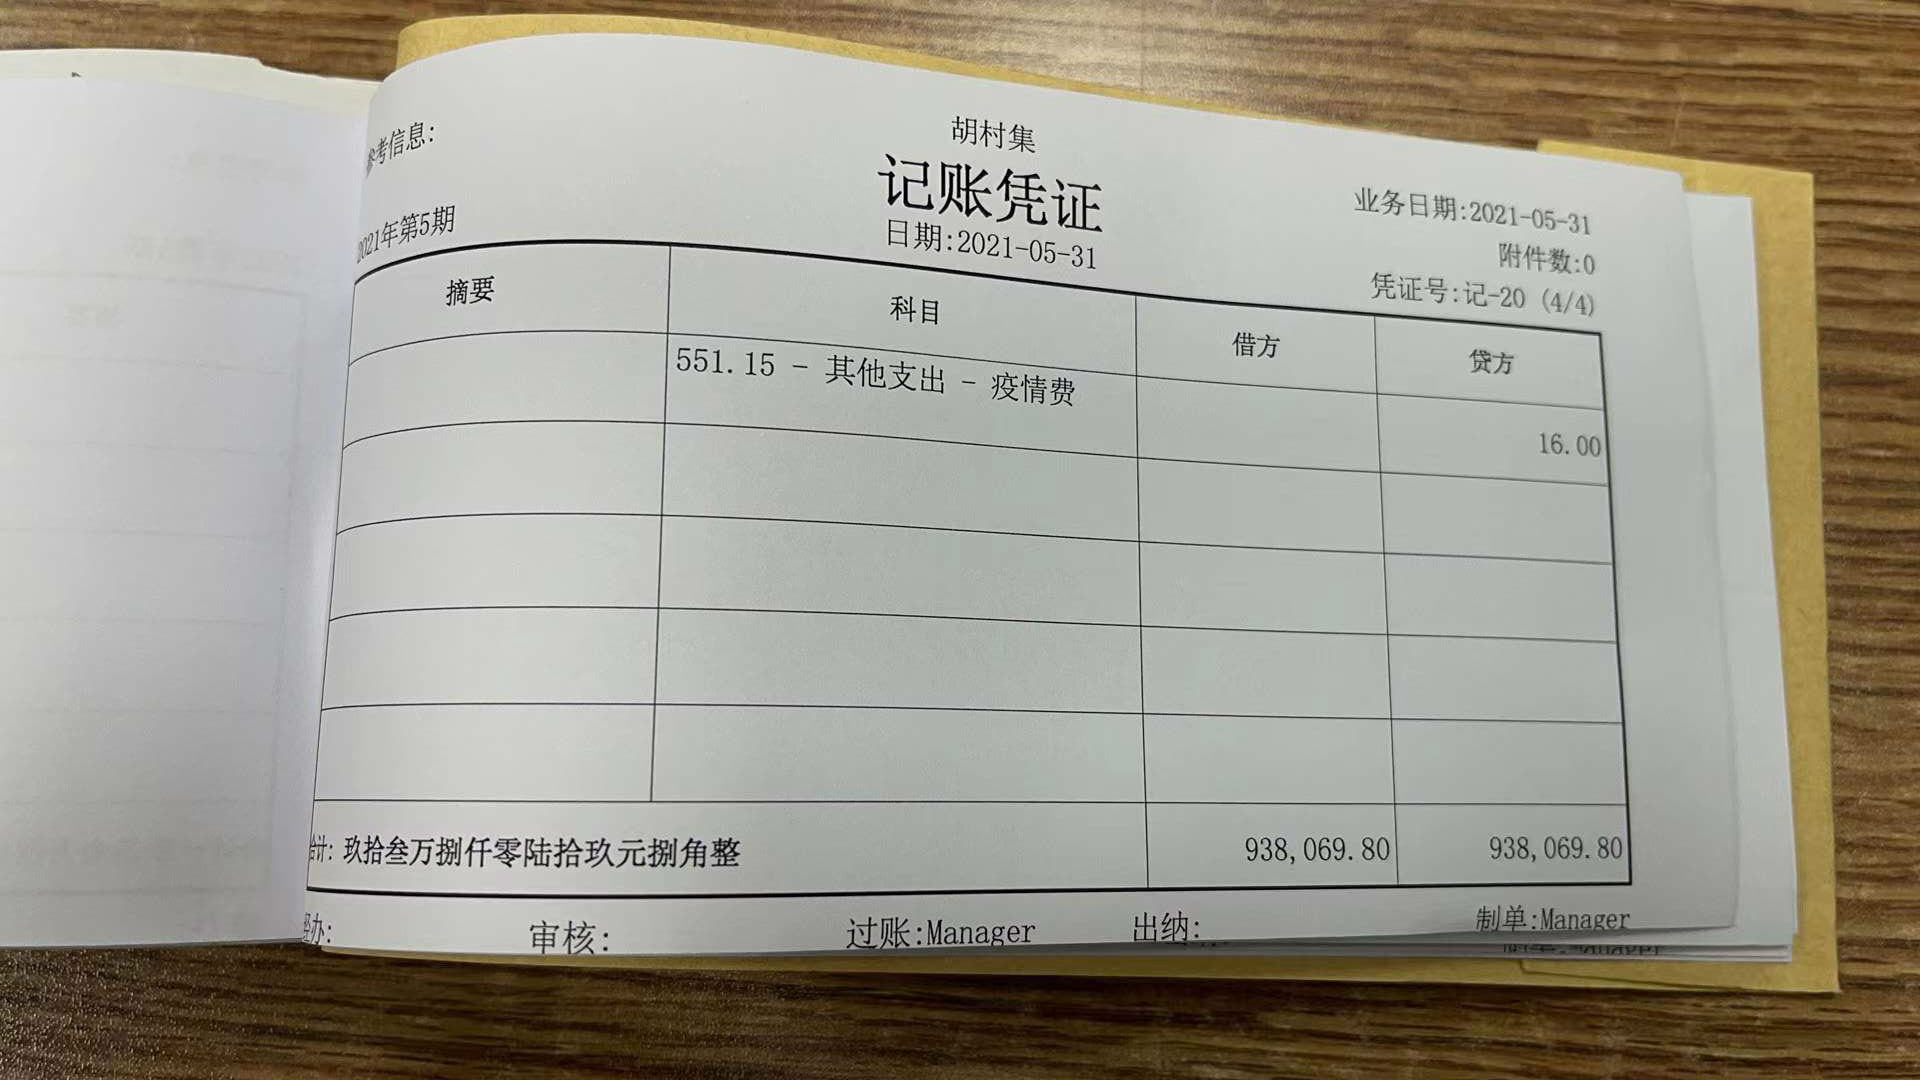 胡村集
参考信息:
记账凭证
业务日期:2021-05-31
2021年第5期
日期:2021-05-31
附件数:0
凭证号:记-20 (4/4)
摘要 科目 借方 贷方
551.15 - 其他支出 - 疫情费 16.00
合计: 玖拾叁万捌仟零陆拾玖元捌角整 938,069.80 938,069.80
经办: 审核: 过账:Manager 出纳: 制单:Manager
制单:Manager